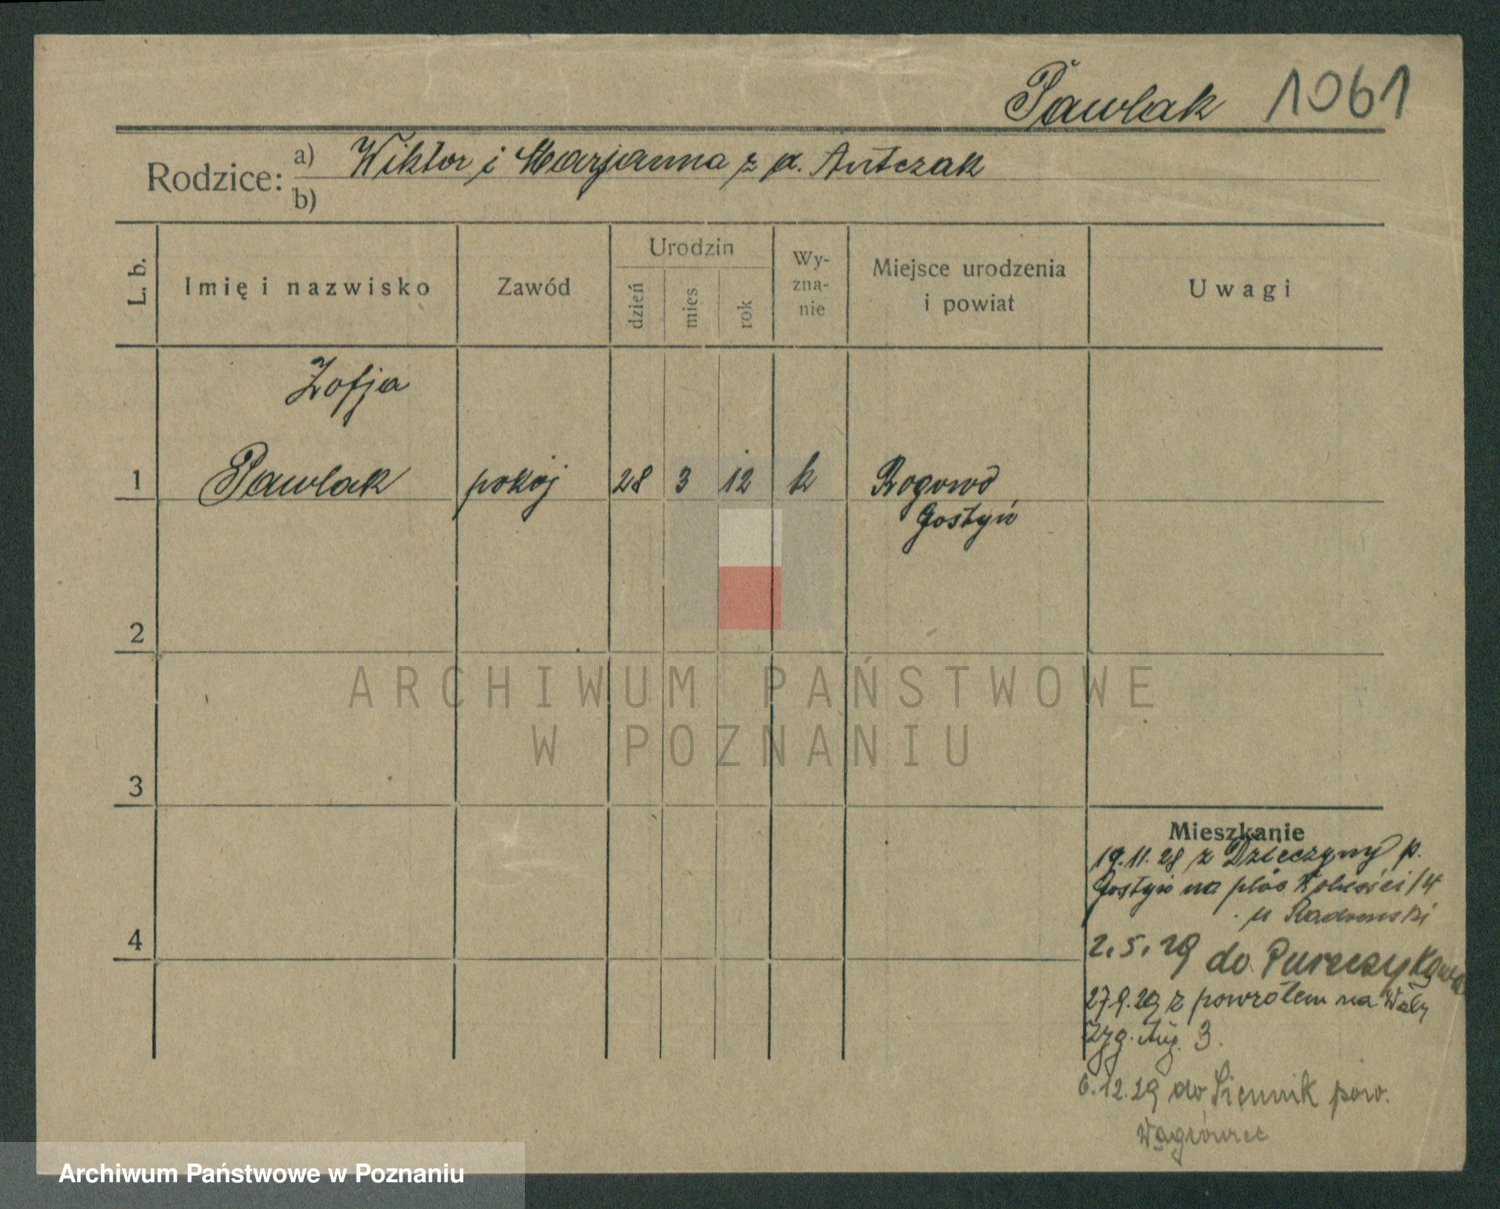 Pawlak 1061
Rodzice: a) Wiktor i Marjanna z d. Antczak
b)
L. b. Imię i nazwisko Zawód Urodzin dzień mies. rok Wy-zna-nie Miejsce urodzenia i powiat Uwagi
Zofja
1 Pawlak pokoj 28 3 12 k Rogowo
Gostyń
2
ARCHIWUM PAŃSTWOWE
W POZNANIU
3
Mieszkanie
19.11.28 z Dzieczyny p.
Gostyń na plac Wolności 14
u Radomski
4
2.5.29 do
27.9.29 z powrotem na Wały
Zyg. Aug. 3.
6.12.29 do Siennik pow.
Wągrówiec
Archiwum Państwowe w Poznaniu